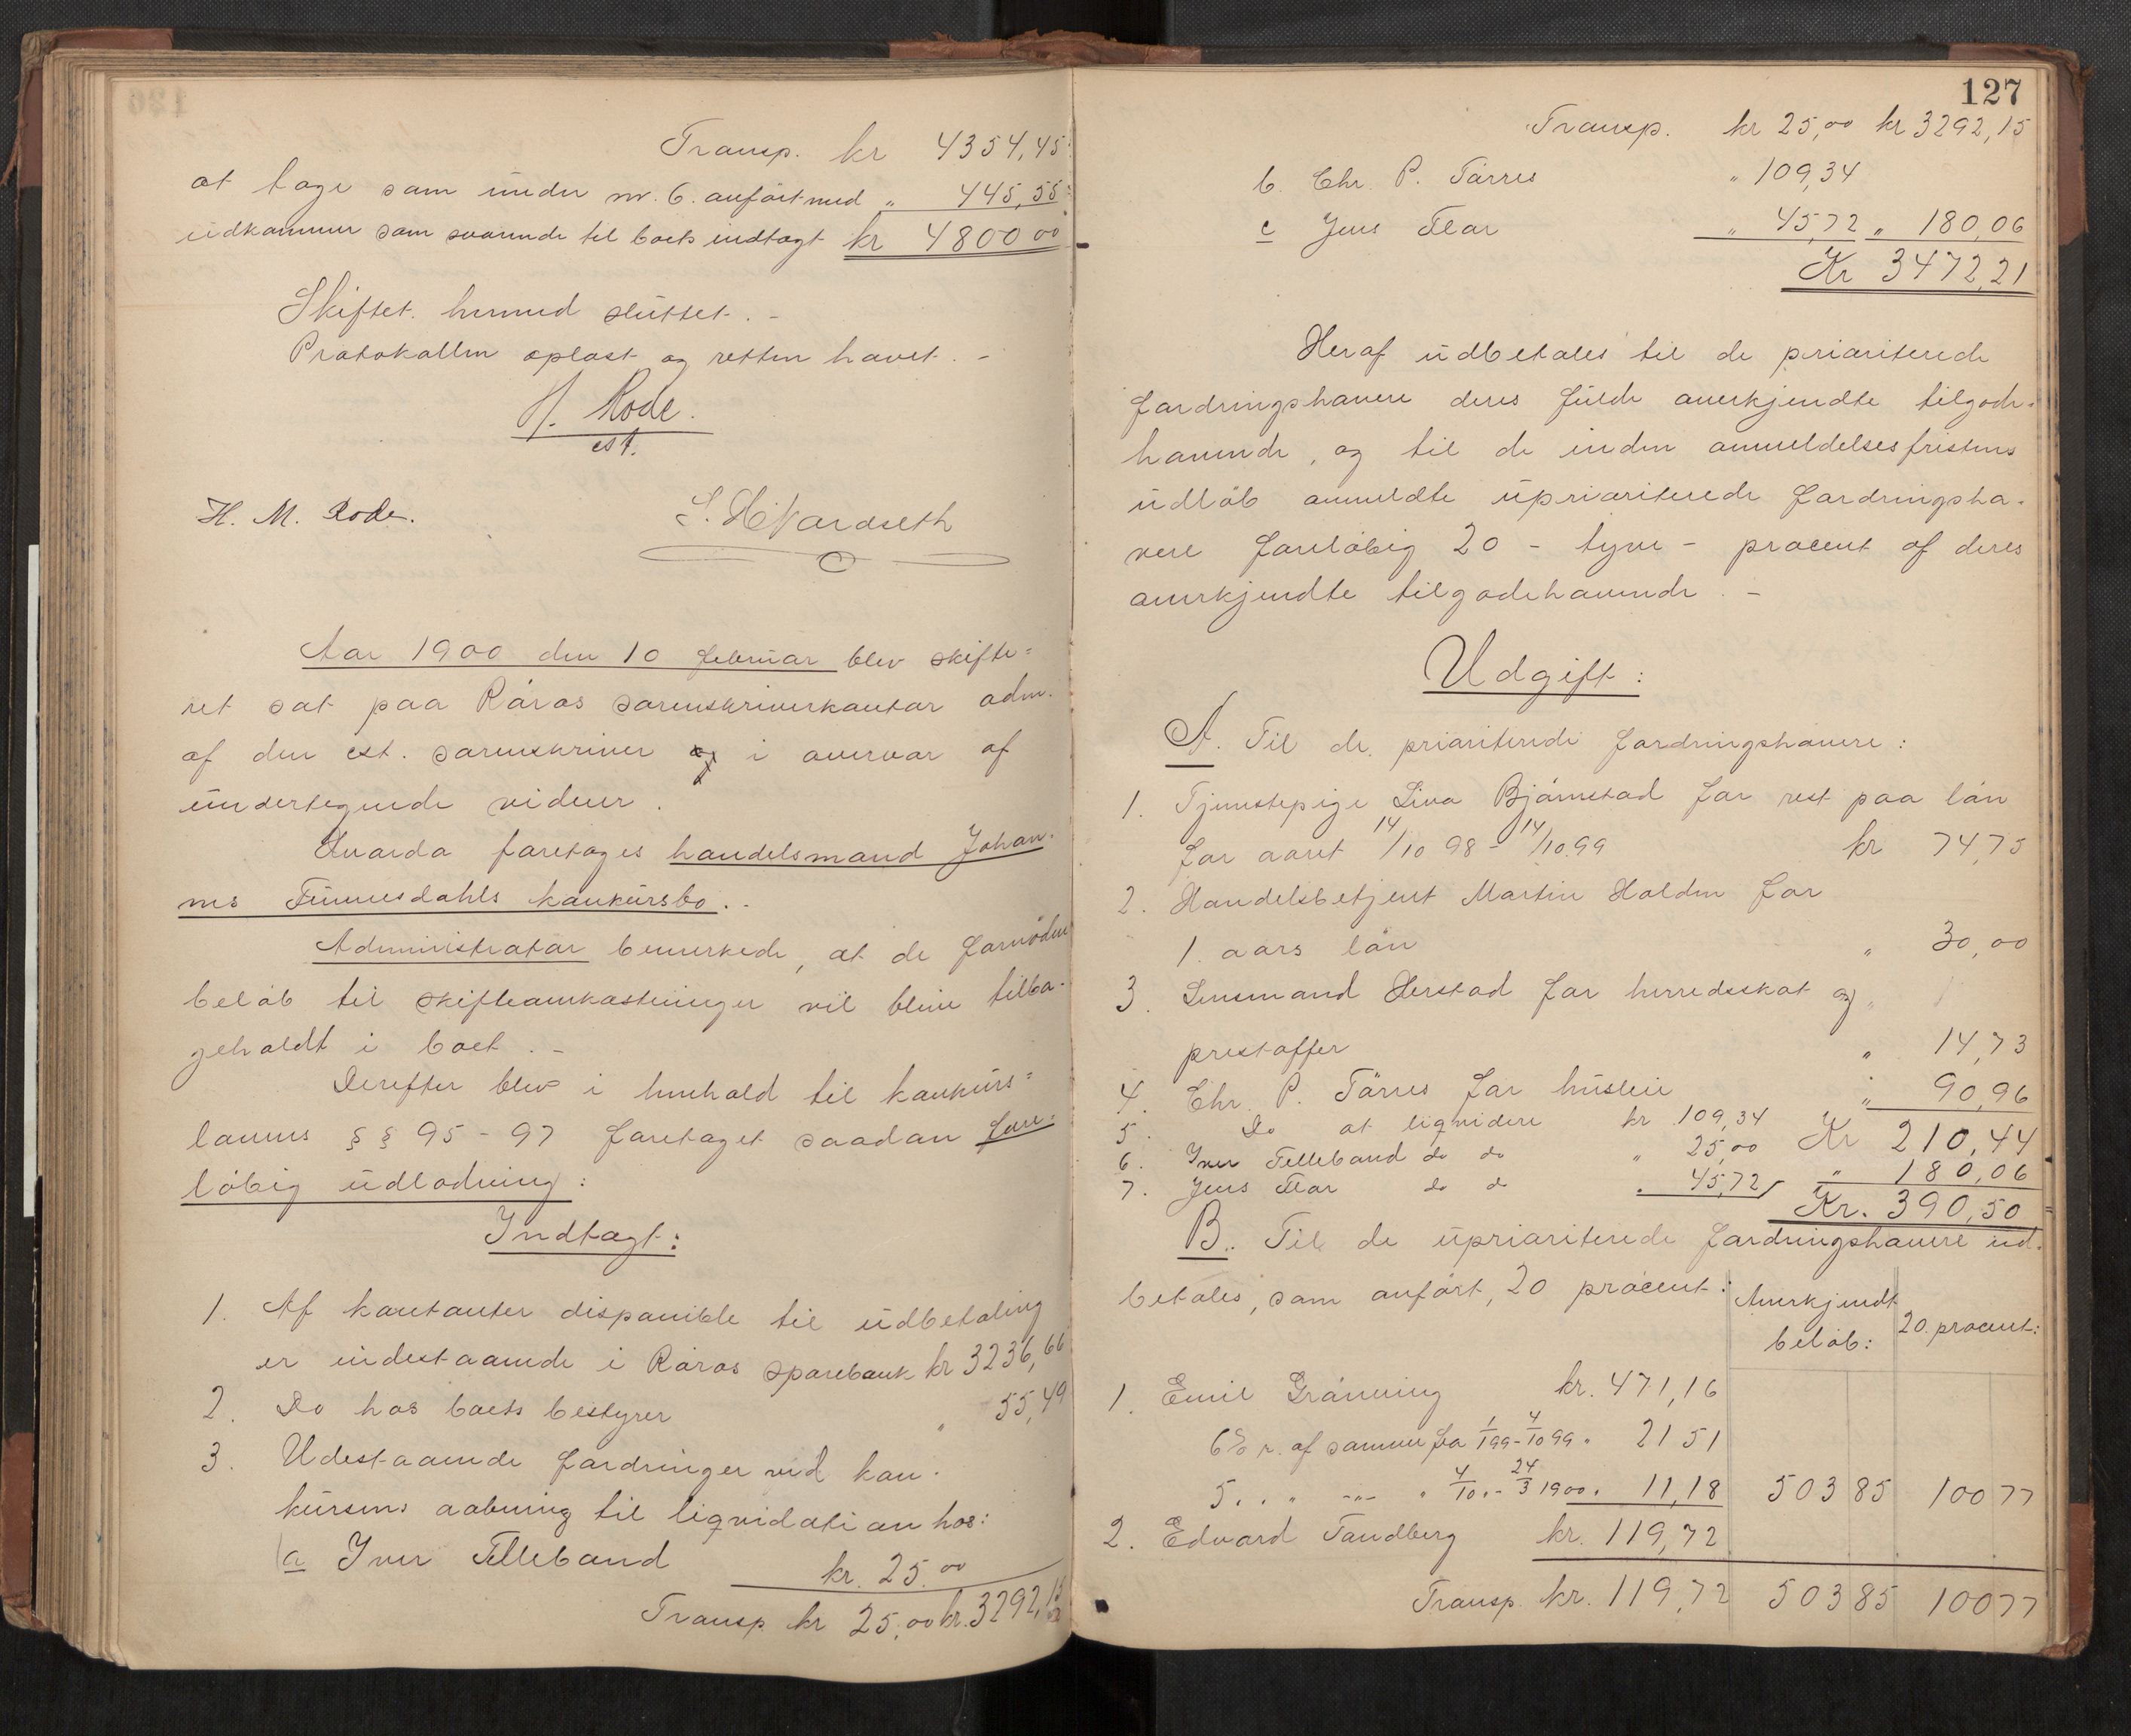 Transp. kr 4354,45
at tage som under nr. 6. anført med " 445,55
udkommer som svarende til boets indtægt kr 4800 00
Skiftet hermed sluttet. -
Protokollen oplæst og retten hævet. -
H. Rode.
cst.
H. M. Rode.
Aar 1900 den 10 februar blev skifte=
ret sat paa Røros sorenskriverkontor adm.
af den cst. sorenskriver i overvær af
undertegnede vidner.
Hvorda foretoges handelsmand Johan-
nes Finnesdahls konkursbo. -
Administrator bemerkede, at de fornødne
beløb til skifteomkostninger vil blive tilba-
geholdt i boet. -
Derefter blev i henhold til konkurs=
lovens § § 95 - 97 foretaget saadan fore=
løbig udlodning:
Indtægt:
1. Af kontanter disponible til udbetaling
er indestaaende i Røros sparebank kr 3236,66
2. Do hos boets bestyrer " 55,49
3. Udestaaende fordringer ved kon-
kursens aabning til liqvidation hos:
a Iver Telleband kr. 25.00
Transp kr 25,00 kr. 3292,15
127
Transp. kr 25,00 kr 3292,15
b. Chr. P. Tørres " 109,34
c Jens Flor " 45,72 " 180,06
Kr 3472,21
Heraf udbetales til de prioriterede
fordringshavere deres fulde anerkjendte tilgode-
havende, og til de inden anmeldelsesfristens
udløb anmeldte uprioriterede fordringsha-
vere foreløbig 20 - tyve - procent af deres
anerkjendte tilgodehavende. -
Udgift:
A. Til de prioriterede fordringshavere:
1. Tjenestepige Lina Bjørnstad for rest paa løn
for aaret 14/10 98 - 14/10.99 kr 74,75
2. Handelsbetjent Martin Holden for
1. aars løn " 30,00
3. Lensmand Herstad for herredsskat og
prestoffer " 14,73
4. Chr. P. Tørres for husleie " 90,96
5. Do at liqvidere kr. 109,34 Kr 210,44
6. Iver Telleband do do " 25,00
7. Jens Flor do do " 45,72 " 180,06
Kr. 390,50
B. Til de uprioriterede fordringshavere ud-
betales, som anført, 20 procent:
Anerkjendt
beløb: 20 procent:
1. Emil Grønning kr. 471,16
6% r. af samme fra 1/1 99 - 4/10 99 " 21 51
5 " " -"- " 4/10 " - 24/3 1900 " 11,18 503 85 100 77
2. Edvard Tandberg kr. 119,72
Transp. kr. 119,72 503 85 100 77